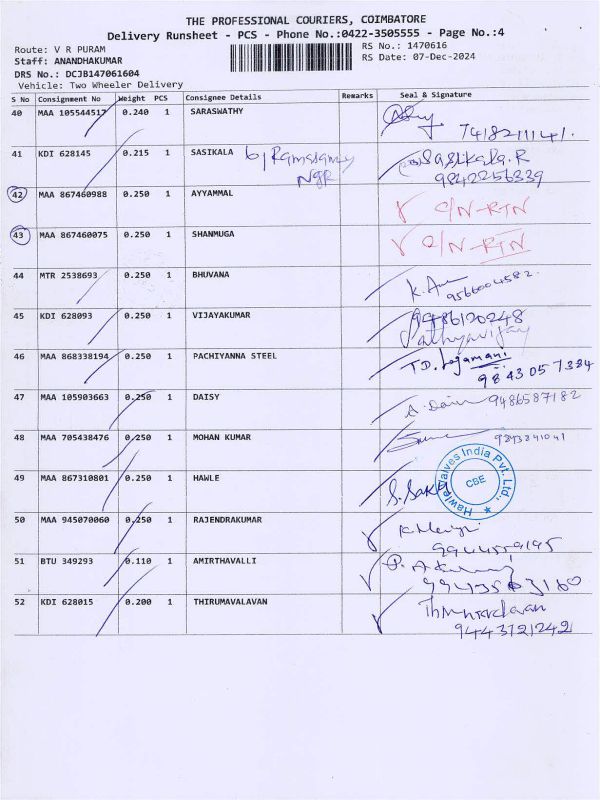 THE PROFESSIONAL COURIERS, COIMBATORE
Delivery Runsheet - PCS - Phone No.:0422-3505555 - Page No.:4
Route: V R PURAM
RS No.: 1470616
Staff: ANANDHAKUMAR
RS Date: 07-Dec-2024
DRS No.: DCJB147061604
Vehicle: Two Wheeler Delivery
S No Consignment No Weight PCS Consignee Details Remarks Seal & Signature
40 MAA 105544517 0.240 1 SARASWATHY
7418211141.
41 KDI 628145 0.215 1 SASIKALA Sasikala.R
NGR 9842256339
42 MAA 867460988 0.250 1 AYYAMMAL C/N-RTN
43 MAA 867460075 0.250 1 SHANMUGA C/N-RTN
44 MTR 2538693 0.250 1 BHUVANA
9566004582.
45 KDI 628093 0.250 1 VIJAYAKUMAR 9486120248
Sathyavijay
46 MAA 868338194 0.250 1 PACHIYANNA STEEL T.D. Logamani
9843057334
47 MAA 105903663 0.250 1 DAISY 9486587182
48 MAA 705438476 0.250 1 MOHAN KUMAR 9843841041
49 MAA 867310801 0.250 1 HAWLE S. Sakthi
Hawle Valves India Pvt. Ltd.,
CBE
50 MAA 945070060 0.250 1 RAJENDRAKUMAR
9944559195
51 BTU 349293 0.110 1 AMIRTHAVALLI
9943563160
52 KDI 628015 0.200 1 THIRUMAVALAVAN Thirumavalavan
9443721242